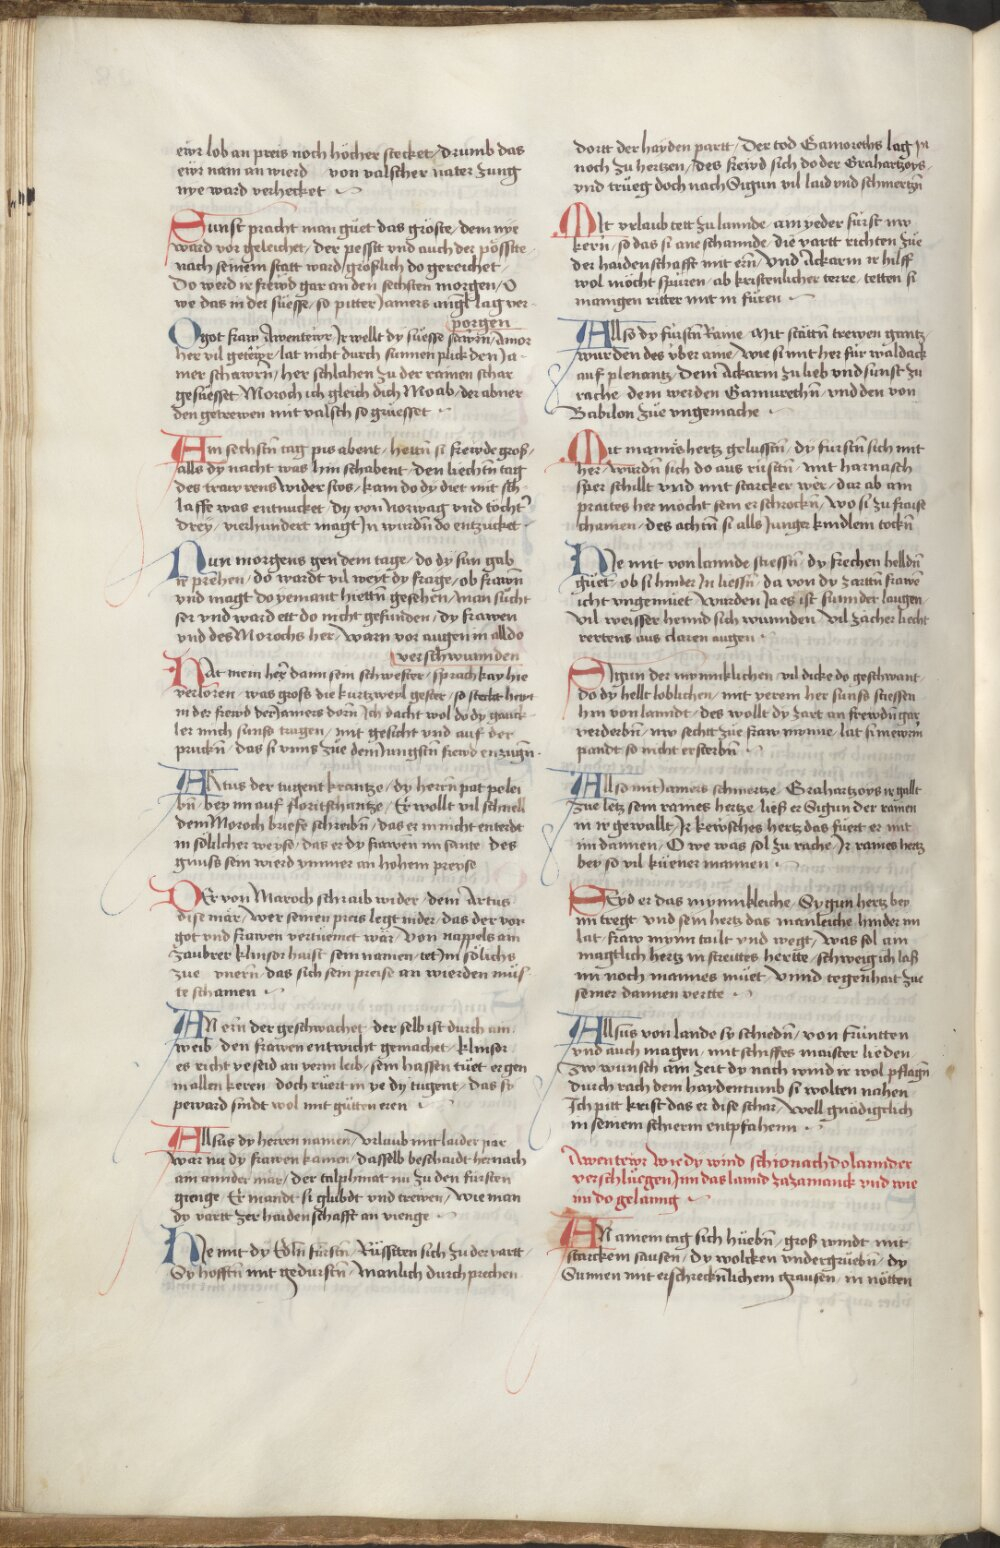 eẃr lob an preis noch höcher stecket / drumb das
eẃr nam an wierd von valscher nater zung
nye ward verhecket
Sunst pracht man güet das gröste / dem nye
ward vor geleichet / der pesst vnd auch der pösste
nach seinem statt ward / gröslich do gereichet /
Do werd ir frewd gar an den sechsten morgen / O
we das in der süesse / so pitter Jamers angl lag ver
porgen
O got fraw Awentewr / Ir wellt dy süesse sawrn / Amor
her vil getewr / lat nicht durch sunnen plick den Ja
mer schawrn / her schlahen zu der rainen schar
gesüesset Moroch ich gleich dich Moab / der abner
den getrewen mit valsch so grüesset
Am sechstn tag pis abent / hettn si frewde gros /
alls dy nacht was hin schabent / den liechtn tag
des trawrens wider stos / kam do dy diet mit sch
laffe was entnucket / dy von Norwag vnd töcht'
drey / vierhundert magt In wurdn do entzucket
Nun morgens gen dem tage / do dy sun gab
ir prehen / do wardt vil weyt dy frage / ob frawn
vnd magt do yemant hiettn gesehen / man sucht
ser vnd ward ett do nicht gefunden / dy frawen
vnd des Morochs her / warn vor augen in all do
verschwunnden
Hat mein her dann sein schwester / sprach kay hie
verloren / was gross die kurtzweyl gester / so steckt hewt
in der frewd der Jamers dorn Ich dacht wol do dy gauck
ler mich sunst trugen / mit gesicht vnd auf der
pruckn / das si vnns züe dem Jungstn frewd enzugn
Artus der tugent krantze / dy herrn pat pelei
bn / bey im auf floritschantze / Er wollt vil schnell
dem Moroch briefe schreibn / das er in nicht enteret
in sölhlcher weyse / das er dy frawen im sante des
gunst sein wierd ymmer an hohem preyse
Der von Maroch schraib wider / dem Artus
dise mär / wer seinen preis legt nider / das der vor
got vnd frawen verüemet wär / Von nappels ain
zaubrer klinsor haist sein namen / tet im sölichs
zue vnern / das sich sein preise an wierden mües
te schamen
An ern der geschwachet der selb ist durch ain
weib den frawen entwicht gemachet klinsor
es richt ye seid an yerm leib / sein hassen tüet er gen
in allen keren doch rüert in ye dy tugent / das sy
peward sindt wol mit gütten eren
Allsus dy herren namen / vrlaub mit laider par
war nu dy frawen kamen / dasselb beschaidt hernach
am annder mär / der talphinat nu zu den fürsten
gienge / Er mandt si glubdt vnd trewen / Wie man
dy vartt zer haidenschafft an vienge
Hie mit dy Edln fürstn / Rüssiten sich zu der vartt
Sy hofftn mit gedurstn / Manlich durch prechen
dortt der hayden partt / Der tod Gamoreths lag In
noch zu hertzen / des frewd sich do der Grahartzoys
vnd trüeg doch nach Sigun vil laid vnd schmertzn
Mit vrlaub tett zu lannde / ain yeder fürst nw
kern / so das si ane schannde / die vartt richten züe
der haidenschafft mit ern / Vnd Ackarin ir hilff
wol mocht spüren / ab kristenlicher terre / tetten si
manigen ritter mit in füren
Allso dy fürstn Rame / Mit stättn trewen gantz
wurden des vber ame / wie si mit her für waldack
auf plenantz / Dem Ackarin zu lieb vnd sunst zu
rache dem werden Gamurethn / vnd den von
Babilon züe vngemache
Mit mannis hertz gelusstn / dy fürstn sich mit
her / wurdn sich do aus rüsstn / mit harnasch
sper schillt vnd mit starcker wer / dar ab ain
praites her mocht sein erschrockn / wo si zu fraise
chamen / des achtn si alls Junger kindlein tockn
Hie mit von lannde stiessn / dy frechen helldn
güet ob si hinder In liessn / da von dy zarttn frawn
icht vngemüet wurden Ja es ist sunnder laugen
vil weisser hennd sich wunnden / vil zäher liecht
rertens aus claren augen
Sigun der mynniklichen / vil dicke do geschwant
do dy hellt loblichen / mit yerem her sunst stiessen
hin von lanndt / des wollt dy zart an frewdn gar
verderbn / nw sechtt züe fraw mynne / lat si inewrm
pandt so nicht ersterbn
Allso mit Jamers schmertze / Grahartzoys ir gallt
züe letz sein raines hertze / lies er Sigun der rainen
in ir gewallt / Ir kewsches hertz das füert er mit
im dannen / O we was sol zu rache / Ir raines hertz
bey so vil küener mannen
Seyd er das mynnikleiche / Sygun hertz bey
im tregt vnd sein hertz das manleiche hinder im
lat / fraw mynn tailt vnd wegt / was sol ain
magtlich hertz in streittes hertte / schweig ich laß
im noch mannes müet / vnnd tegenhait züe
seiner dannen vertte
Allsus von lande sy schiedn / von früntten
vnd auch magen / mit schiffes maister lieden
zw wunsch ain zeit dy nach wind ir wol pflagn
durch rach dem haydentumb si wolten nahen
Ich pitt krist das er dise schar / well gnädigclich
in seinem schierm entpfahenn
Awentewr Wie dy wind schionachdolannder
verschluegen / Inn das lannd zazamanck vnd wie
im do gelanng
An ainem tag sich hüebn / gros windt mit
starckem sausen / dy wolcken vndergrüebn / dy
Sunnen mit erschrecknlichem grausen / in nötten